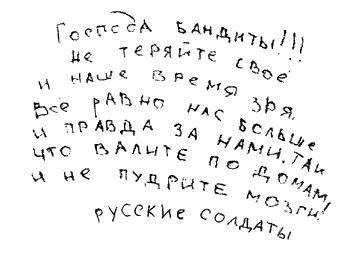 Господа бандиты!!!
не теряйте своё
и наше время зря.
Всё равно нас больше
и правда за нами. Так
что валите по домам,
и не пудрите мозги!
русские солдаты